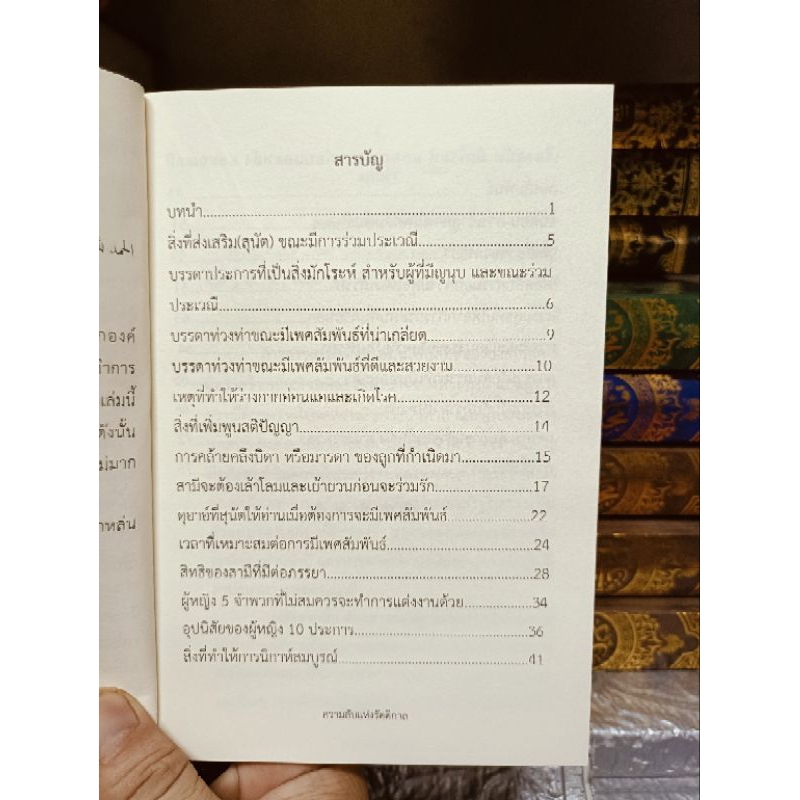 สารบัญ
บทนำ.......................................................................1
สิ่งที่ส่งเสริม(สุนัต) ขณะมีการร่วมประเวณี.........................5
บรรดาประการที่เป็นสิ่งมักโระห์ สำหรับผู้ที่มีญูนุบ และขณะร่วม
ประเวณี....................................................................6
บรรดาท่วงท่าขณะมีเพศสัมพันธ์ที่น่าเกลียด........................9
บรรดาท่วงท่าขณะมีเพศสัมพันธ์ที่ดีและสวยงาม.................10
เหตุที่ทำให้ร่างกายอ่อนแอและเกิดโรค............................12
สิ่งที่เพิ่มพูนสติปัญญา................................................14
การคล้ายคลึงบิดา หรือมารดา ของลูกที่กำเนิดมา...............15
สามีจะต้องเล้าโลมและเย้ายวนก่อนจะร่วมรัก....................17
ดุอาอ์ที่สุนัตให้อ่านเมื่อต้องการจะมีเพศสัมพันธ์..................22
เวลาที่เหมาะสมต่อการมีเพศสัมพันธ์..............................24
สิทธิของสามีที่มีต่อภรรยา............................................28
ผู้หญิง 5 จำพวกที่ไม่สมควรจะทำการแต่งงานด้วย..............34
อุปนิสัยของผู้หญิง 10 ประการ.......................................36
สิ่งที่ทำให้การนิกาห์สมบูรณ์..........................................41
ความลับแห่งรัตติกาล
กองค์
ทำการ
เล่มนี้
ดังนั้น
ม่มาก
าหล่น